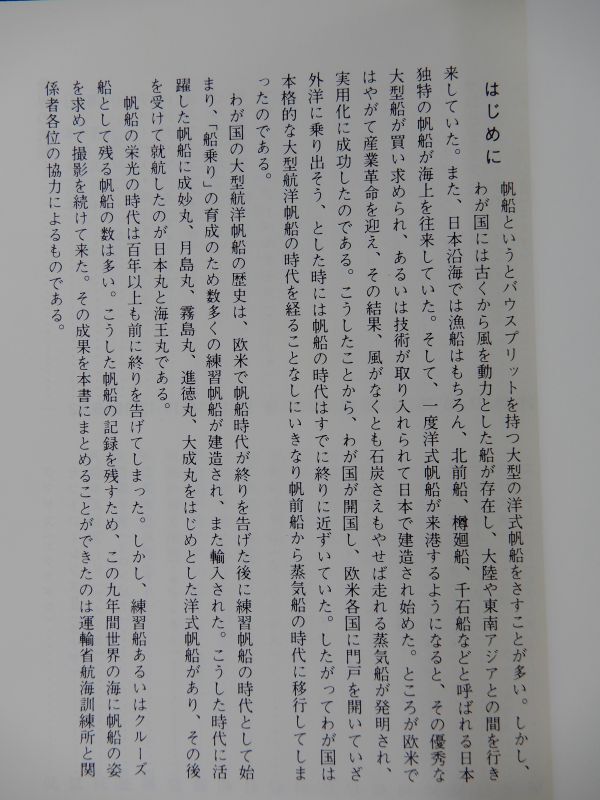 はじめに
帆船というとバウスプリットを持つ大型の洋式帆船をさすことが多い。しかし、
わが国には古くから風を動力とした船が存在し、大陸や東南アジアとの間を行き
来していた。また、日本沿海では漁船はもちろん、北前船、樽廻船、千石船などと呼ばれる日本
独特の帆船が海上を往来していた。そして、一度洋式帆船が来港するようになると、その優秀な
大型船が買い求められ、あるいは技術が取り入れられて日本で建造され始めた。ところが欧米で
はやがて産業革命を迎え、その結果、風がなくとも石炭さえもやせば走れる蒸気船が発明され、
実用化に成功したのである。こうしたことから、わが国が開国し、欧米各国に門戸を開いていざ
外洋に乗り出そう、とした時には帆船の時代はすでに終りに近ずいていた。したがってわが国は
本格的な大型航洋帆船の時代を経ることなしにいきなり帆前船から蒸気船の時代に移行してしま
ったのである。
わが国の大型航洋帆船の歴史は、欧米で帆船時代が終りを告げた後に練習帆船の時代として始
まり、「船乗り」の育成のため数多くの練習帆船が建造され、また輸入された。こうした時代に活
躍した帆船に成妙丸、月島丸、霧島丸、進徳丸、大成丸をはじめとした洋式帆船があり、その後
を受けて就航したのが日本丸と海王丸である。
帆船の栄光の時代は百年以上も前に終りを告げてしまった。しかし、練習船あるいはクルーズ
船として残る帆船の数は多い。こうした帆船の記録を残すため、この九年間世界の海に帆船の姿
を求めて撮影を続けて来た。その成果を本書にまとめることができたのは運輸省航海訓練所と関
係者各位の協力によるものである。